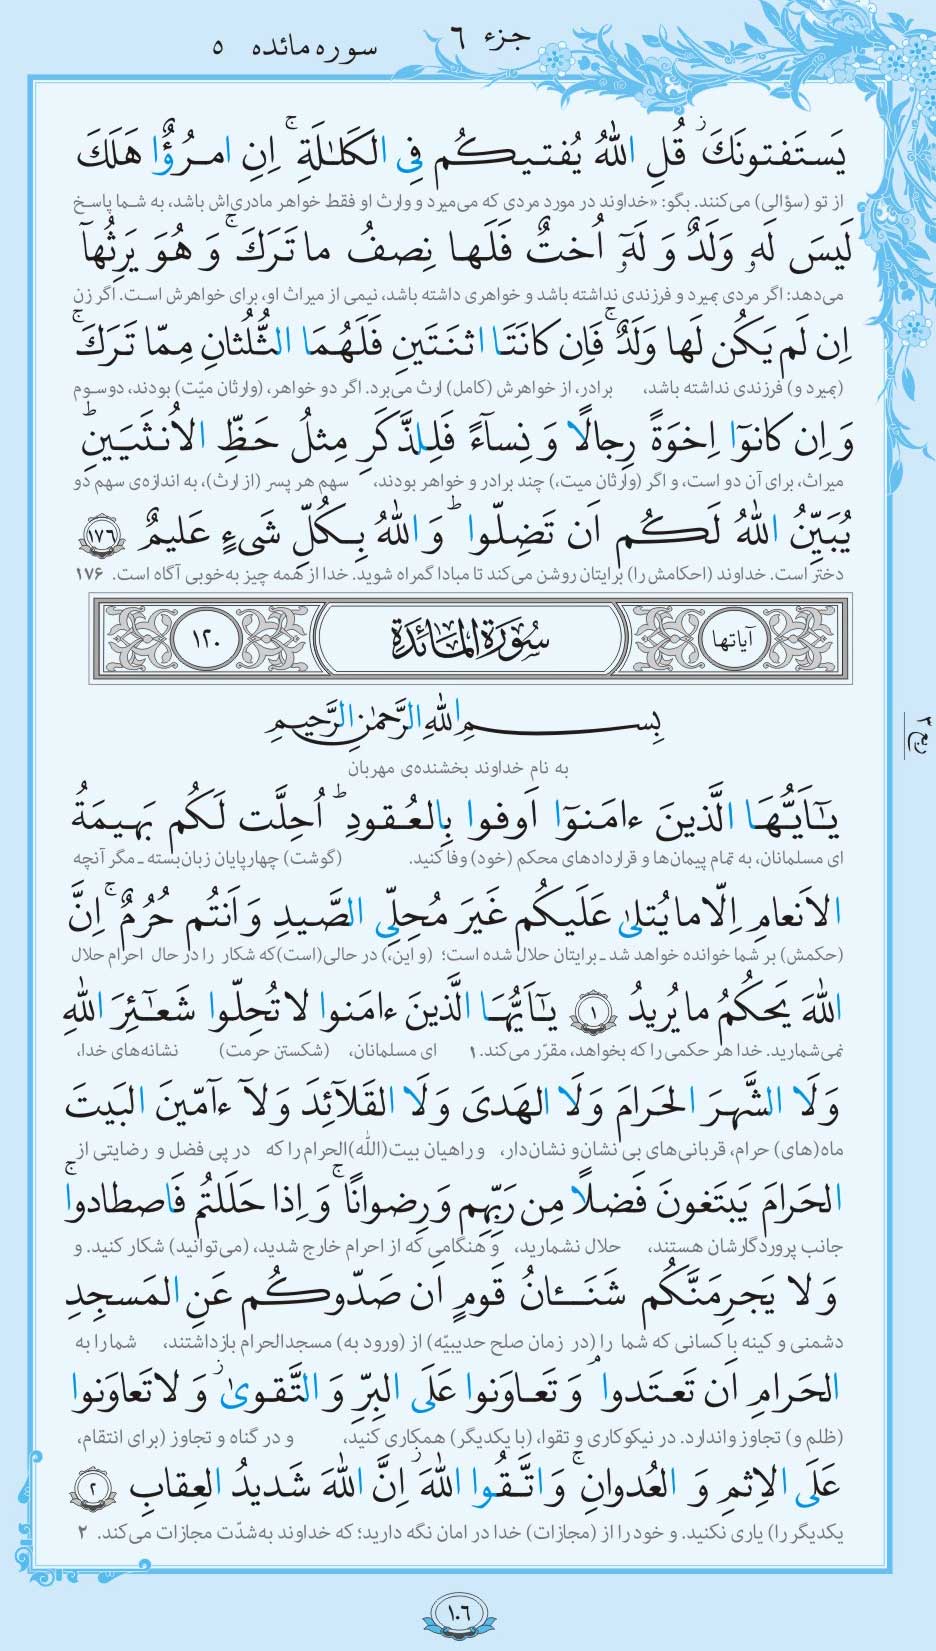 جزء ۶ سوره مائده ۵
يَستَفتونَكَ قُلِ اللّٰهُ يُفتيكُم فِي الكَلـٰلَةِ ۚ اِنِ امرُؤٌا هَلَكَ
از تو (سؤالی) می‌کنند. بگو: «خداوند در مورد مردی که می‌میرد و وارث او فقط خواهر مادری‌اش باشد، به شما پاسخ
لَيسَ لَهٗ وَلَدٌ وَ لَهٗٓ اُختٌ فَلَها نِصفُ ما تَرَكَ ۚ وَ هُوَ يَرِثُهآ
می‌دهد: اگر مردی بمیرد و فرزندی نداشته باشد و خواهری داشته باشد، نیمی از میراث او، برای خواهرش است. اگر زن
اِن لَم يَكُن لَها وَلَدٌ ۚ فَاِن كانَتَا اثنَتَينِ فَلَهُمَا الثُّلُثانِ مِمّا تَرَكَ ۚ
(بمیرد و) فرزندی نداشته باشد، برادر، از خواهرش (کامل) ارث می‌برد. اگر دو خواهر، (وارثان میّت) بودند، دوسوم
وَ اِن كانوٓا اِخوَةً رِجالًا وَ نِسآءً فَلِلذَّكَرِ مِثلُ حَظِّ الاُنثَيَينِ ؕ
میراث، برای آن دو است، و اگر (وارثان میت،) چند برادر و خواهر بودند، سهم هر پسر (از ارث)، به اندازه‌ی سهم دو
يُبَيِّنُ اللّٰهُ لَكُم اَن تَضِلّوا ؕ وَ اللّٰهُ بِكُلِّ شَیءٍ عَليمٌ ۱۷۶
دختر است. خداوند (احکامش را) برایتان روشن می‌کند تا مبادا گمراه شوید. خدا از همه چیز به‌خوبی آگاه است. ۱۷۶
آیاتها سُورَةُ المَائدَةِ ۱۲۰
بِسمِ اللّٰهِ الرَّحمٰنِ الرَّحيمِ
به نام خداوند بخشنده‌ی مهربان
ربع ۲
يـٰٓاَيُّهَا الَّذينَ ءامَنوٓا اَوفوا بِالعُقودِ ؕ اُحِلَّت لَكُم بَهيمَةُ
ای مسلمانان، به تمام پیمان‌ها و قراردادهای محکم (خود) وفا کنید. (گوشت) چهارپایان زبان‌بسته ـ مگر آنچه
الاَنعامِ اِلّا ما يُتلىٰ عَلَيكُم غَيرَ مُحِلِّي الصَّيدِ وَ اَنتُم حُرُمٌ ۚ اِنَّ
(حکمش) بر شما خوانده خواهد شد ـ برایتان حلال شده است؛ (و این،) در حالی(است)که شکار را در حال احرام حلال
اللّٰهَ يَحكُمُ ما يُريدُ ۱ يـٰٓاَيُّهَا الَّذينَ ءامَنوا لا تُحِلّوا شَعـٰٓئِرَ اللّٰهِ
نمی‌شمارید. خدا هر حکمی را که بخواهد، مقرّر می‌کند. ۱ ای مسلمانان، (شکستن حرمت) نشانه‌های خدا،
وَلَا الشَّهرَ الحَرامَ وَلَا الهَدىَ وَلَا القَلآئِدَ وَلآ ءآمّينَ البَيتَ
ماه(های) حرام، قربانی‌های بی نشان و نشان‌دار، و راهیان بیت(اللّٰه)الحرام را که در پی فضل و رضایتی از
الحَرامَ يَبتَغونَ فَضلًا مِن رَبِّهِم وَ رِضوانًا ۚ وَ اِذا حَلَلتُم فَاصطادوا ۚ
جانب پروردگارشان هستند، حلال نشمارید، و هنگامی که از احرام خارج شدید، (می‌توانید) شکار کنید. و
وَ لا يَجرِمَنَّكُم شَنَـٔانُ قَومٍ اَن صَدّوكُم عَنِ المَسجِدِ
دشمنی و کینه با کسانی که شما را (در زمان صلح حدیبیّه) از (ورود به) مسجدالحرام بازداشتند، شما را به
الحَرامِ اَن تَعتَدوا ۘ وَ تَعاوَنوا عَلَى البِرِّ وَ التَّقوىٰ وَ لا تَعاوَنوا
(ظلم و) تجاوز واندارد. در نیکوکاری و تقوا، (با یکدیگر) همکاری کنید، و در گناه و تجاوز (برای انتقام،
عَلَى الاِثمِ وَ العُدوانِ ۚ وَ اتَّقُوا اللّٰهَ اِنَّ اللّٰهَ شَديدُ العِقابِ ۲
یکدیگر را) یاری نکنید. و خود را از (مجازات) خدا در امان نگه دارید؛ که خداوند به‌شدّت مجازات می‌کند. ۲
۱۰۶